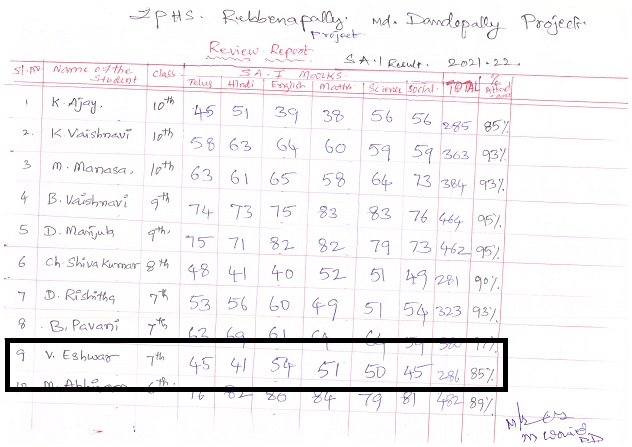 ZPHS. Rebbenapally. Md. Dandepally Project.
Project
Review Report
S.A.I Result. 2021-22.
Sl.No Name of the Student Class S.A.I Marks. TOTAL
Telus Hindi English Maths Science Social
1 K. Ajay. 10th 45 51 39 38 56 56 285 85%
2. K. Vaishnavi 10th 58 63 64 60 59 59 363 93%
3 M. Manasa. 10th 63 61 65 58 64 73 384 93%
4 B. Vaishnavi 9th 74 73 75 83 83 76 464 95%
5 D. Manjula 9th. 75 71 82 82 79 73 462 95%
6 Ch. Shiva Kumar 8th 48 41 40 52 51 49 281 90%
7 D. Rishitha 7th 53 56 60 49 51 54 323 93%
8 B. Pavani 7th 61
9 V. Eshwar 7th 45 41 54 51 50 45 286 85%
M. 6th 76 82 80 84 79 81 482 89%